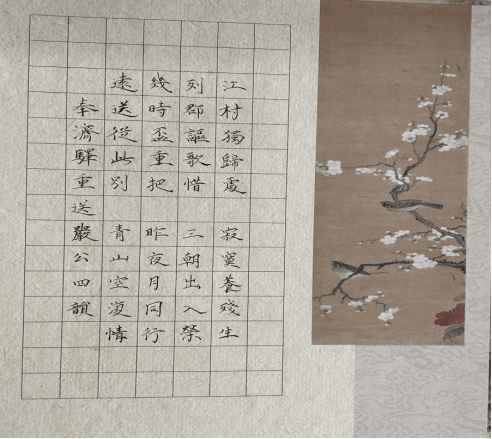 奉濟驛重送嚴公四韻
遠送從此別 青山空復情
幾時盃重把 昨夜月同行
列郡謳歌惜 三朝出入榮
江村獨歸處 寂寞養殘生